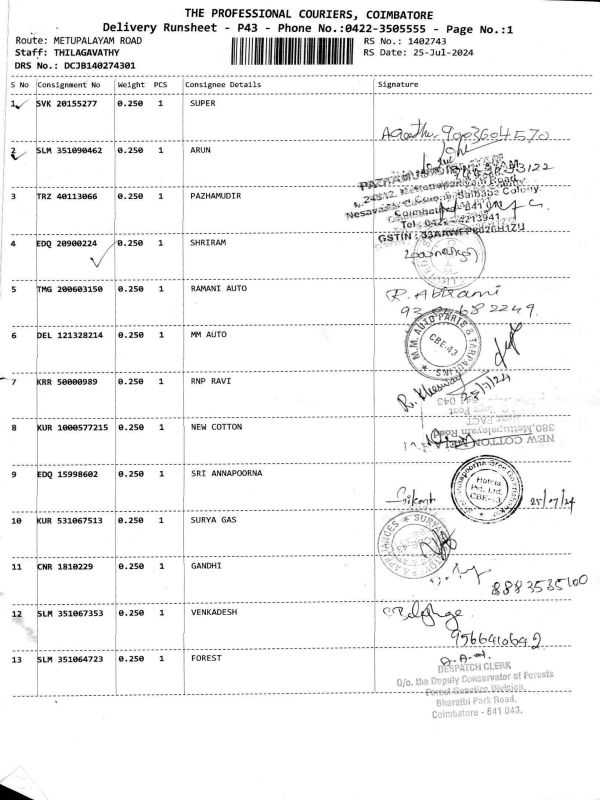 THE PROFESSIONAL COURIERS, COIMBATORE
Delivery Runsheet - P43 - Phone No.:0422-3505555 - Page No.:1
Route: METUPALAYAM ROAD RS No.: 1402743
Staff: THILAGAVATHY RS Date: 25-Jul-2024
DRS No.: DCJB140274301
S No Consignment No Weight PCS Consignee Details Signature
1 SVK 20155277 0.250 1 SUPER
9003604570
2 SLM 351090462 0.250 1 ARUN
3 TRZ 40113066 0.250 1 PAZHAMUDIR
Coimbatore
GSTIN :
4 EDQ 20900224 0.250 1 SHRIRAM
5 TMG 200603150 0.250 1 RAMANI AUTO
R. Abirami
6 DEL 121328214 0.250 1 MM AUTO
M.M. AUTO PARTS & TARPAULINS
CBE-43
7 KRR 50000989 0.250 1 RNP RAVI
25/7/24
8 KUR 1000577215 0.250 1 NEW COTTON
NEW COTTON
380, Mettupalayam Road
9 EDQ 15998602 0.250 1 SRI ANNAPOORNA
Srikant
Hotels
Pvt. Ltd.
CBE-43
25/07/24
10 KUR 531067513 0.250 1 SURYA GAS
11 CNR 1810229 0.250 1 GANDHI
8883535100
12 SLM 351067353 0.250 1 VENKADESH
9566410642
13 SLM 351064723 0.250 1 FOREST
DESPATCH CLERK
O/o. the Deputy Conservator of Forests
Forest Genetics Division,
Bharathi Park Road,
Coimbatore - 641 043.